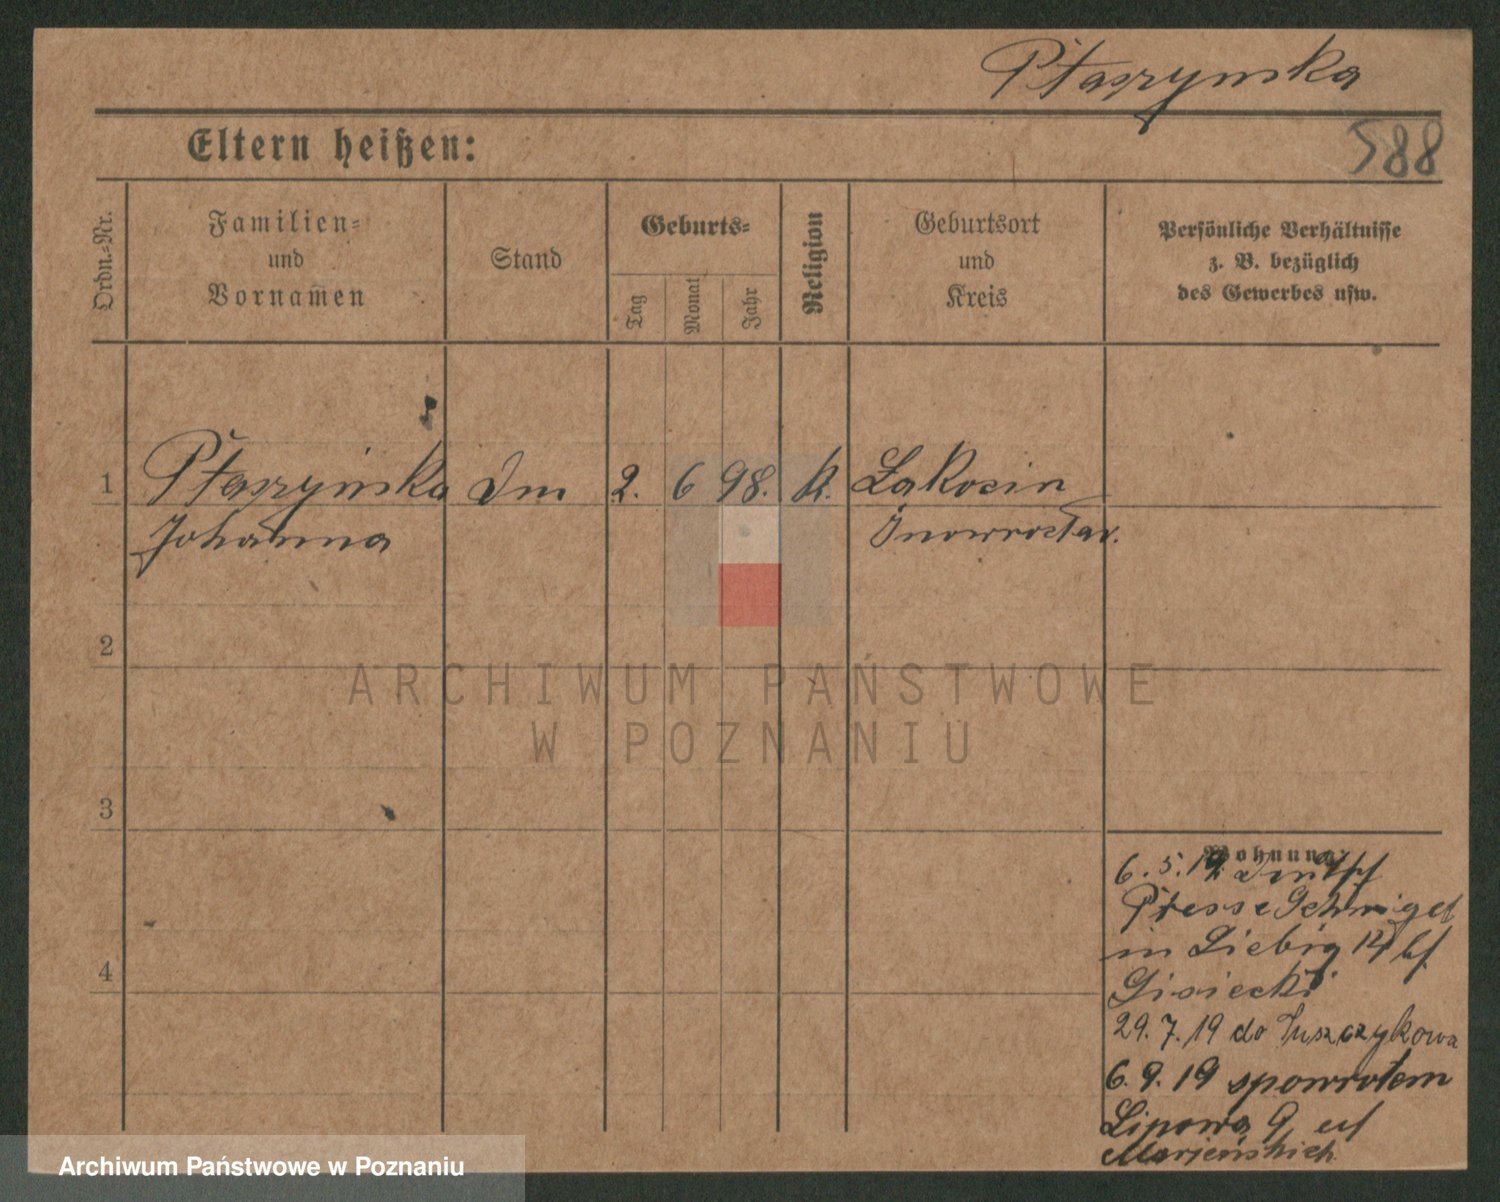 Ptaszynska
588
Eltern heißen:
Ordn.-Nr.
Familien-
und
Vornamen
Stand
Geburts-
Tag
Monat
Jahr
Religion
Geburtsort
und
Kreis
Persönliche Verhältnisse
z. B. bezüglich
des Gewerbes usw.
1 Ptaszyńska 2. 6 98. K.
Johanna Inowroctav.
2
3
4
Wohnung:
6. 5. 19.
Presse Schmigel
in Liebig 14 bf
Lisiecki
29. 7. 19 do
6. 9. 19 spowrotem
Lipowa 9
ARCHIWUM PAŃSTWOWE
W POZNANIU
Archiwum Państwowe w Poznaniu